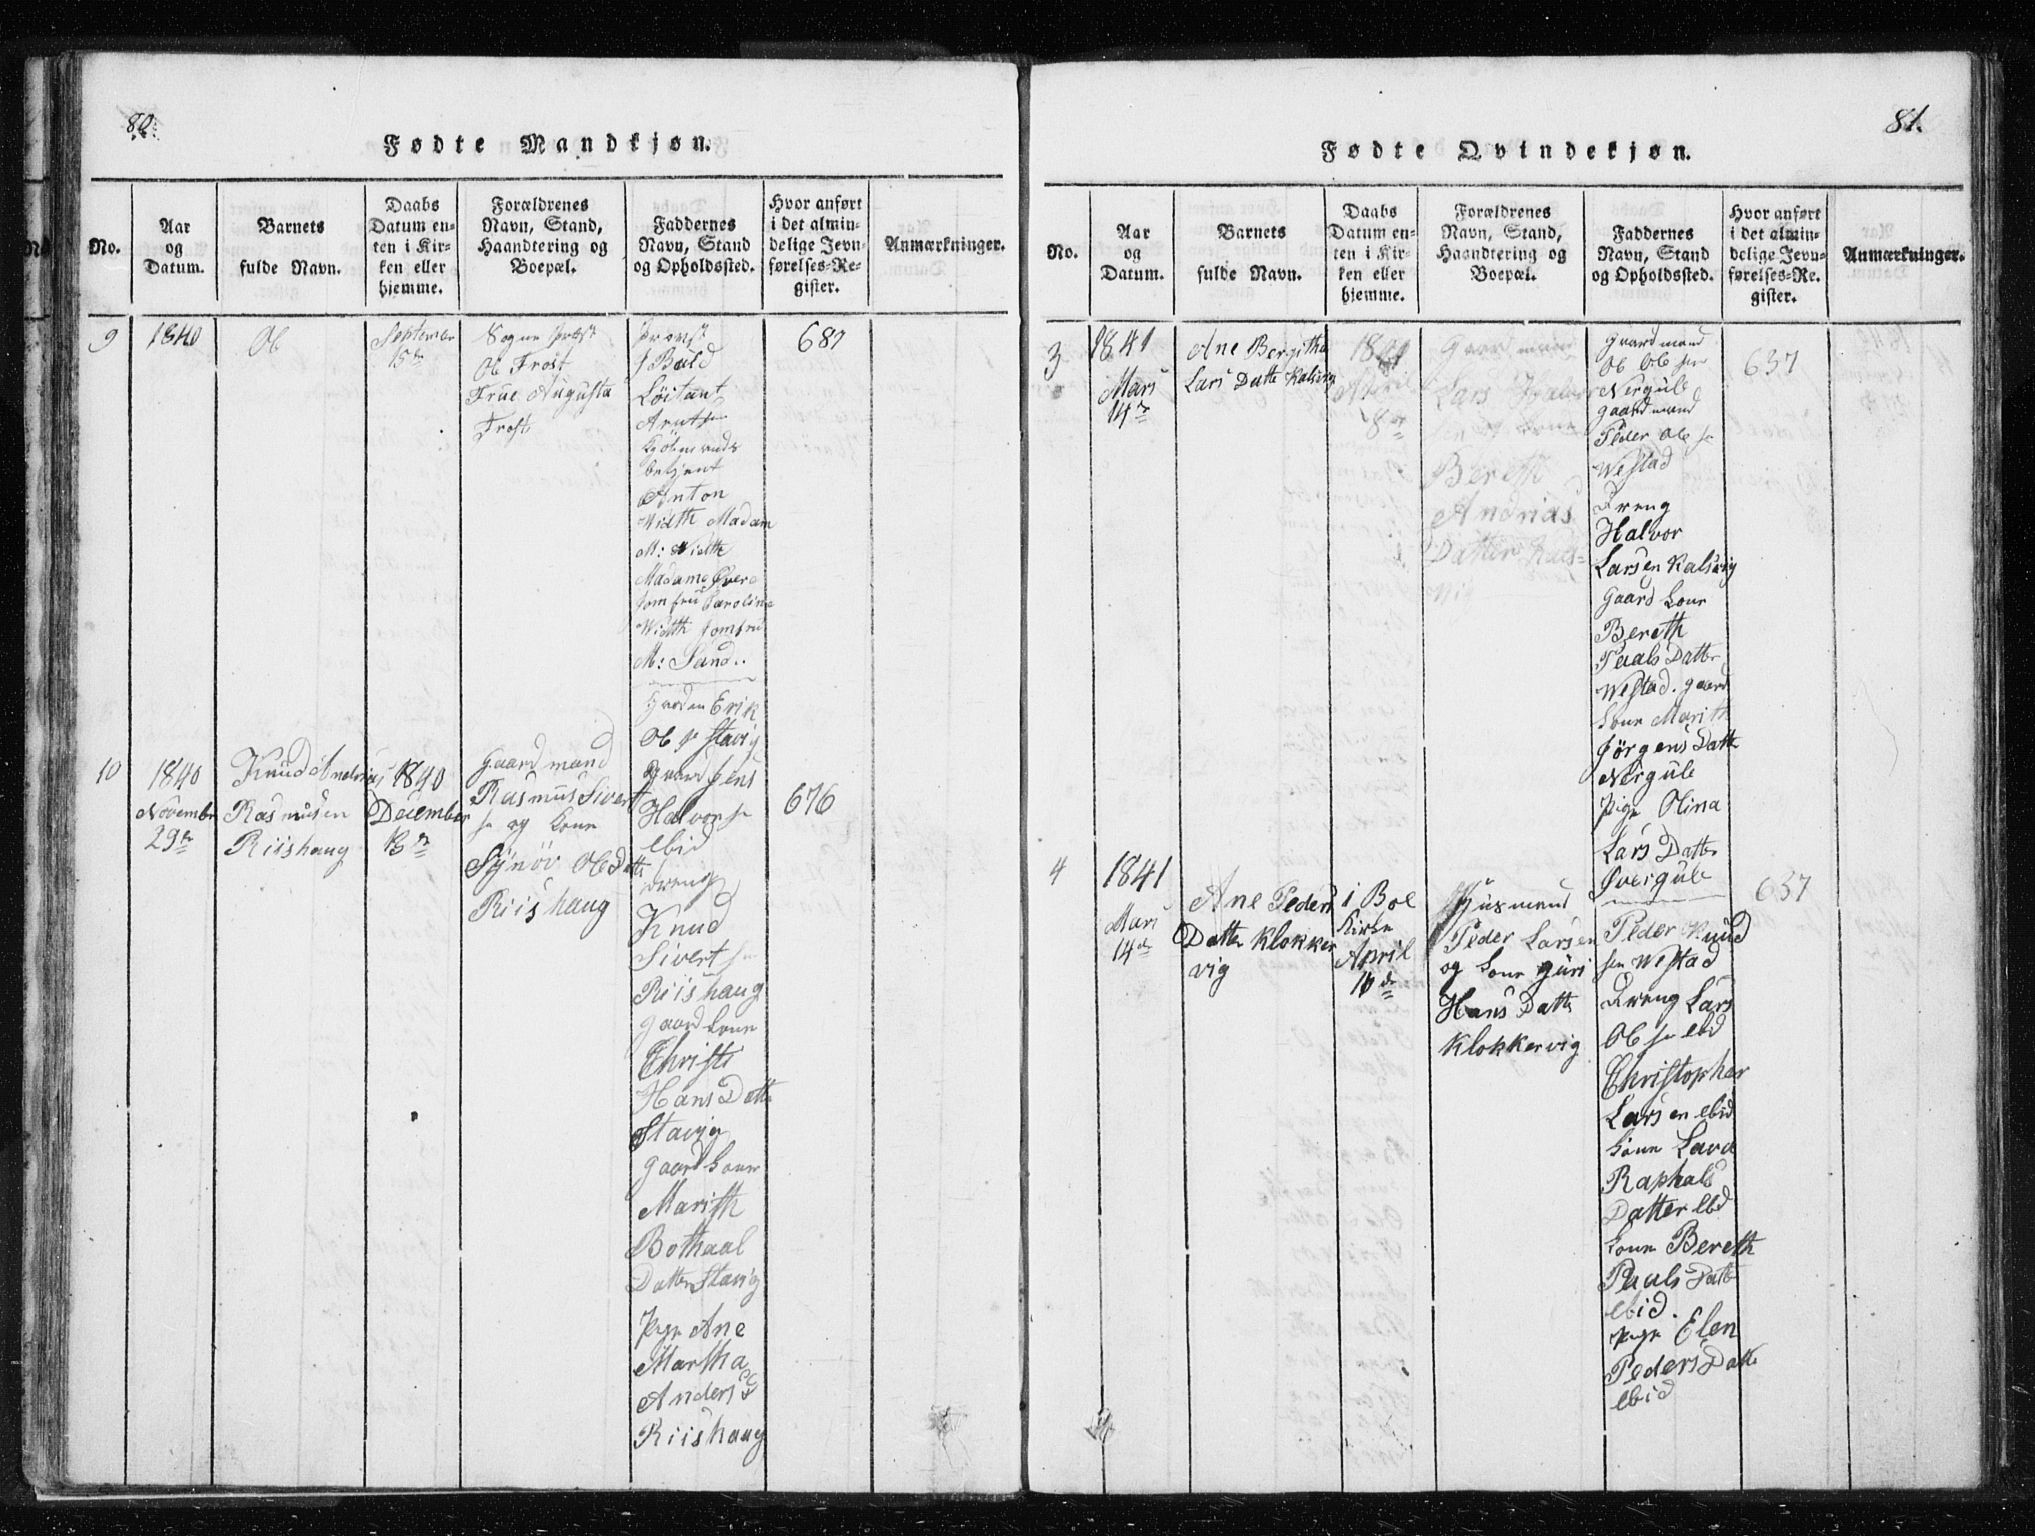 80.
Fødte Mandkjøn.
No.
Aar
og
Datum.
Barnets
fulde Navn.
Daabs
Datum en-
ten i Kir-
ken eller
hjemme.
Forældrenes
Navn, Stand,
Haandtering og
Boepæl.
Faddernes
Navn, Stand
og Opholdssted.
Hvor anført
i det almin-
delige Jevn-
førelses-Re-
gister.
Anmærkninger.
9
1840
Ole
September
15de
Sogne Præst
Ole Frost
Frue Augusta
Frost
Provst
Løitant
Kjøbmands
betjent
Anton
Width Madam
M: Width
Madam
Jomfru Caroline
Width Jomfru
M: Sand..
Erik
Ole sn Stavig
687
10
1840
November
29de
Knud Andreas
Rasmusen
Riishaug
1840
December
Gaardmand
Rasmus Sivert
sn og kone
Synøv Ole Datte
Riishaug
Jens
Halvor sn
ebid
Dreng
Knud
Sivert sn
Riishaug
Gaard kone
Christi
Hans Datte
Stavig
Gaard kone
Marith
Bothaal
Datter Stavig
Pige Ane
Martha
Anders
Riishaug
676
81.
Fødte Qvindekjøn.
No.
Aar
og
Datum.
Barnets
fulde Navn.
Daabs
Datum en-
ten i Kir-
ken eller
hjemme.
Forældrenes
Navn, Stand,
Haandtering og
Boepæl.
Faddernes
Navn, Stand
og Opholdssted.
Hvor anført
i det almin-
delige Jevn-
førelses-Re-
gister.
Anmærkninger.
3
1841
Mars
14de
Ane Bergitha
Lars Datte Kalsvig
1841
April
Gaardmand
Lars
og kone
Bereth
Andrias
Datter Kals-
vig
Gaardmand
Ole Ole sen
Nergule
Gaardmand
Peder Ole sn
Westad
Dreng
Halvor
Larsen Kalsvig
Gaard kone
Bereth
Paals Datter
Westad. Gaard
kone Marith
Jørgens Datte
Nergule
Pige Olina
Lars Datter
Øvergule
637
4
1841
Mars
14de
Ane Peders
Datter Klokker
vig
i Boe
Kirke
April
Husmand
Peder Larsen
og kone Guri
Hans Datte
Klokkervig
Peder Knud
sen Westad
Dreng Lars
Ole sn ebd
Christopher
Larsen ebid
kone
Raphals
Datter ebd
kone Bereth
Paals Datte
ebid.
Pige Elen
Peders Datte
ebid
637